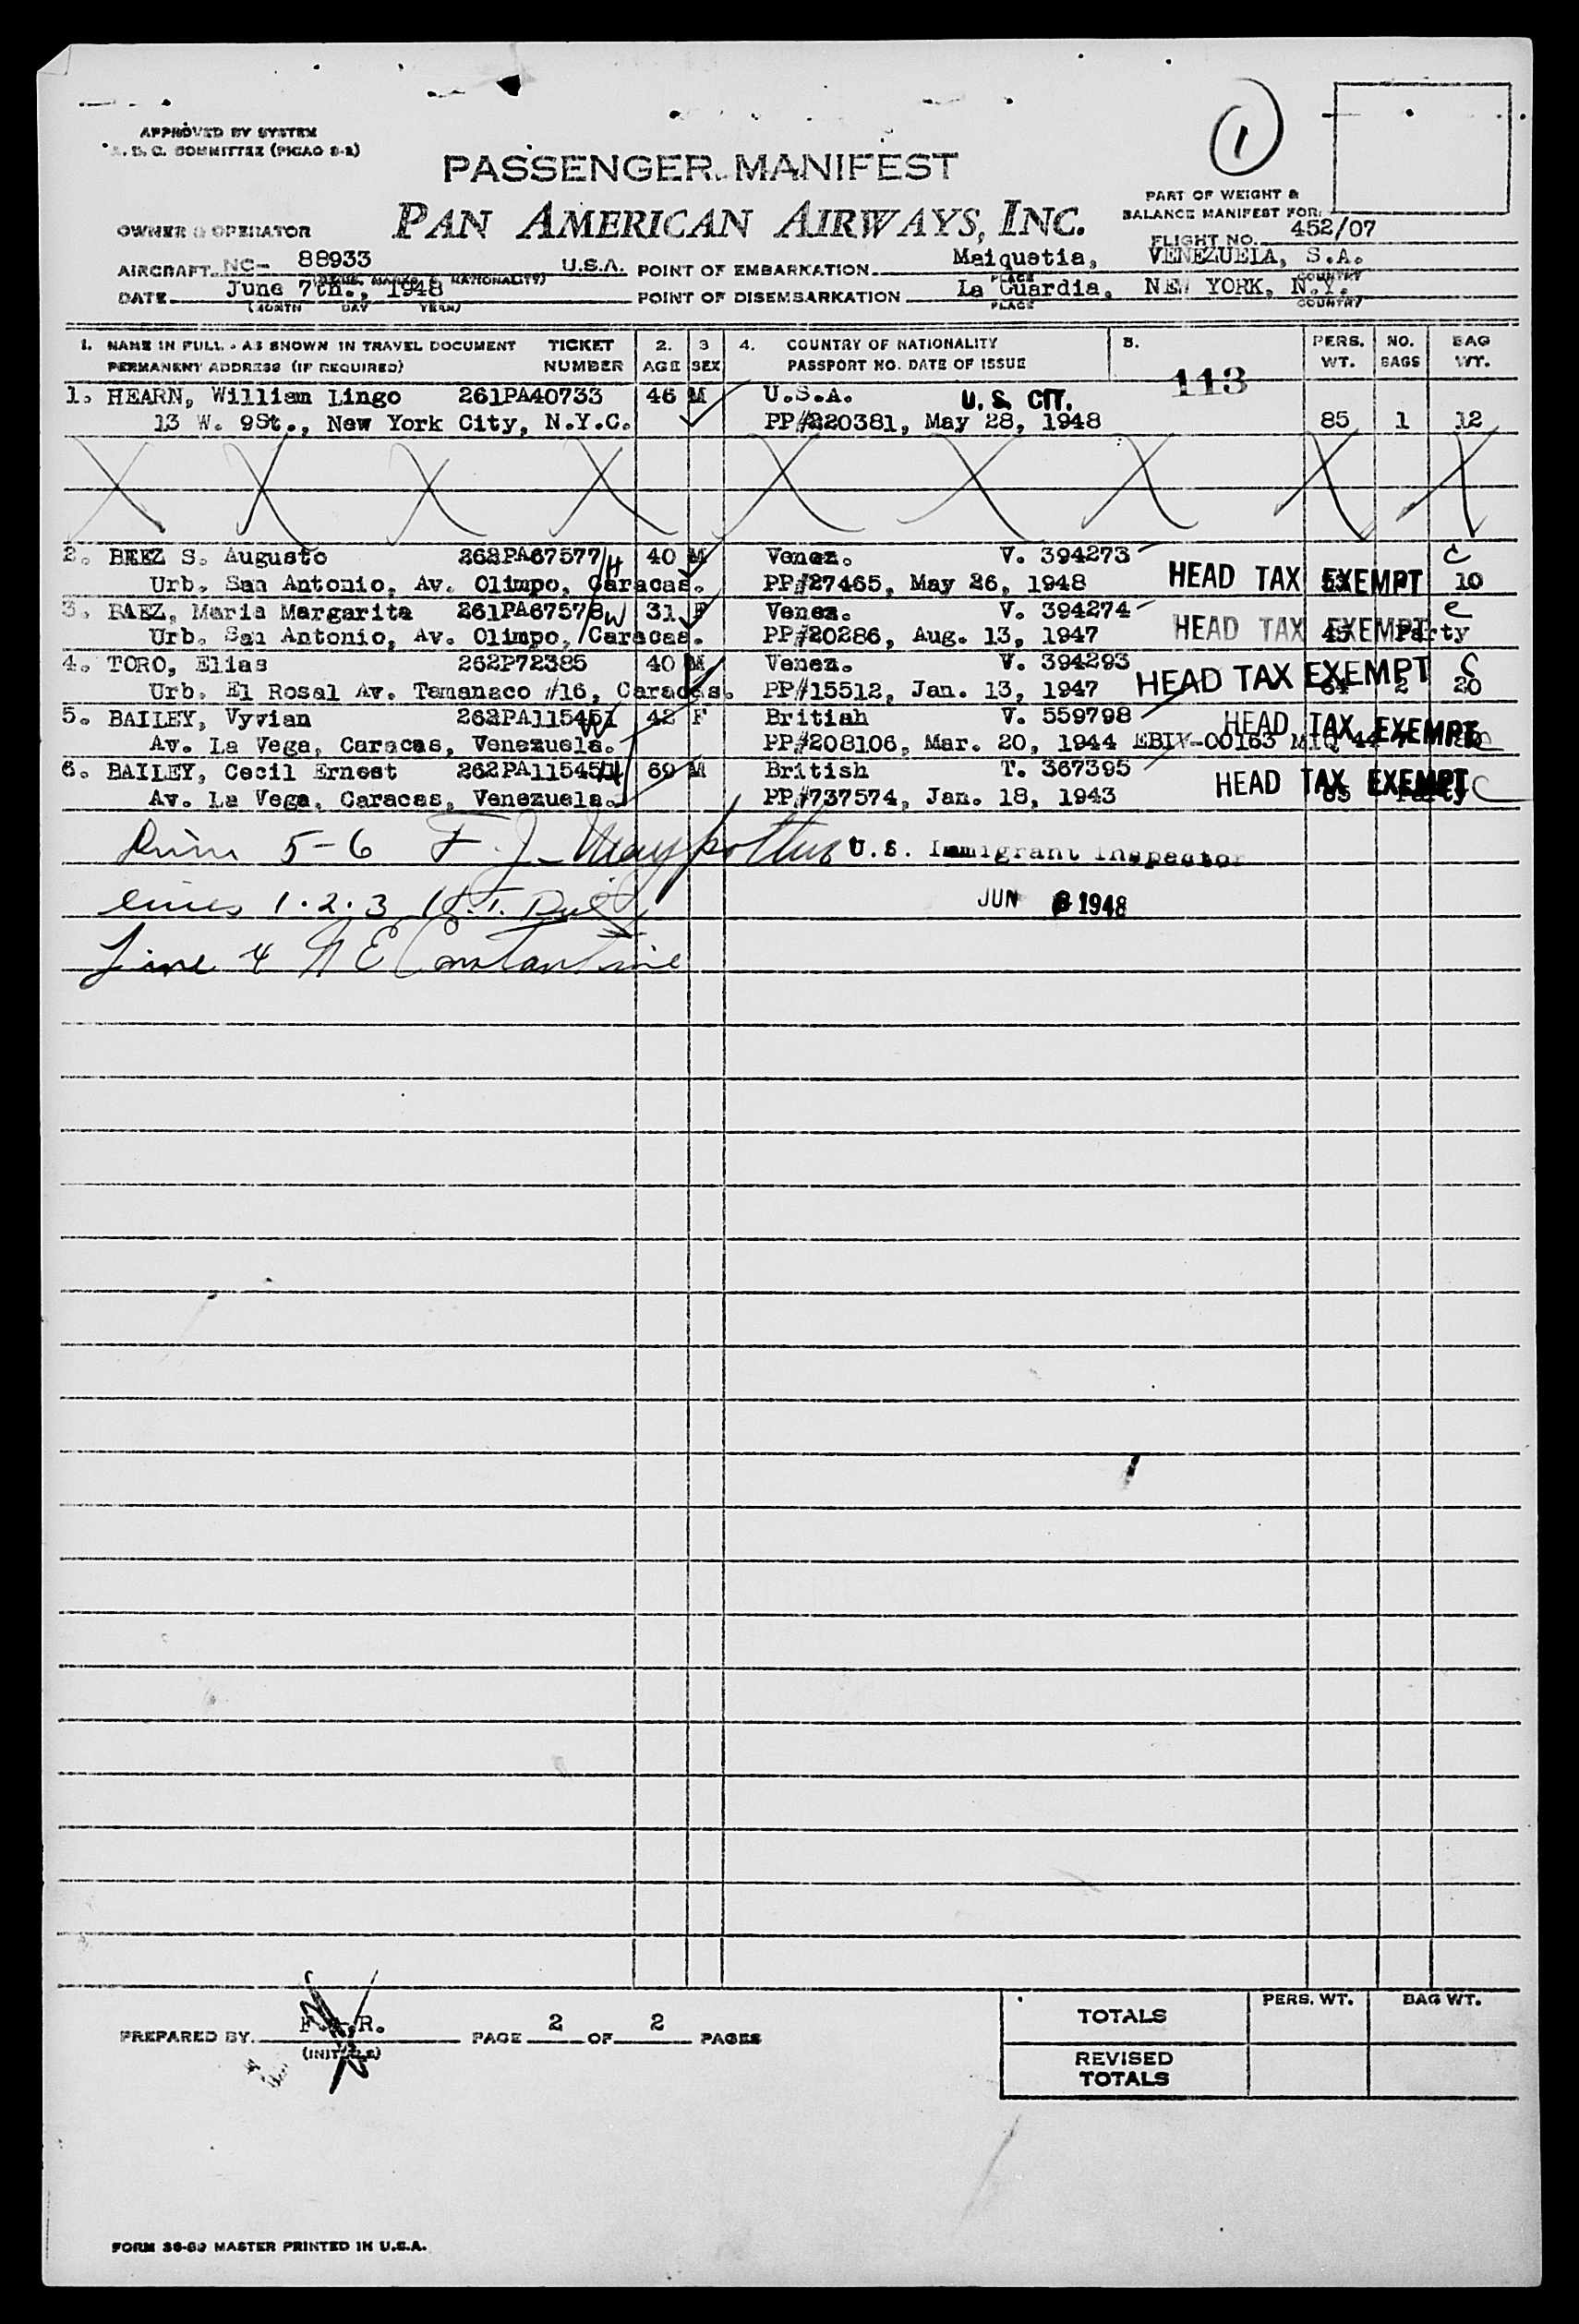 1
APPROVED BY SYSTEM
COMMITTEE (PICAO 8-2)
PASSENGER MANIFEST
PAN AMERICAN AIRWAYS, INC.
PART OF WEIGHT &
BALANCE MANIFEST FOR:
OWNER & OPERATOR
FLIGHT NO. 452/07
AIRCRAFT NC- 88933 U.S.A. POINT OF EMBARKATION Maiquetia, VENEZUELA, S.A.
DATE June 7th., 1948 POINT OF DISEMBARKATION La Guardia, NEW YORK, N.Y.
(MONTH DAY YEAR) PLACE COUNTRY
1. NAME IN FULL - AS SHOWN IN TRAVEL DOCUMENT TICKET 2. 3 4. COUNTRY OF NATIONALITY 5. PERS. NO. BAG
PERMANENT ADDRESS (IF REQUIRED) NUMBER AGE SEX PASSPORT NO. DATE OF ISSUE WT. BAGS WT.
113
1. HEARN, William Lingo 261PA40733 46 M U.S.A. U.S. CIT.
13 W. 9St., New York City, N.Y.C. PP#220381, May 28, 1948 85 1 12
2. BAEZ S. Augusto 262PA67577 H 40 M Venez. V. 394273 C
Urb. San Antonio, Av. Olimpo, Caracas. PP#27465, May 26, 1948 HEAD TAX EXEMPT 10
3. BAEZ, Maria Margarita 261PA67578 W 31 F Venez. V. 394274 C
Urb. San Antonio, Av. Olimpo, Caracas. PP#20286, Aug. 13, 1947 HEAD TAX EXEMPT Party
4. TORO, Elias 262P72385 40 M Venez. V. 394293 C
Urb. El Rosal Av. Tamanaco #16, Caracas. PP#15512, Jan. 13, 1947 HEAD TAX EXEMPT 64 2 20
5. BAILEY, Vyvian 262PA115451 W 42 F British V. 559798 HEAD TAX EXEMPT
Av. La Vega, Caracas, Venezuela. PP#208106, Mar. 20, 1944 EBIV-00163 MIQ C
6. BAILEY, Cecil Ernest 262PA11545 H 69 M British T. 367395 HEAD TAX EXEMPT
Av. La Vega, Caracas, Venezuela. PP#737574, Jan. 18, 1943 65 Party C
5-6 F. J. U.S. Immigrant Inspector
lines 1.2.3 JUN 8 1948
Line 4 N E Constantine
PREPARED BY. PAGE 2 OF 2 PAGES
(INITIALS)
TOTALS PERS. WT. BAG WT.
REVISED
TOTALS
FORM MASTER PRINTED IN U.S.A.